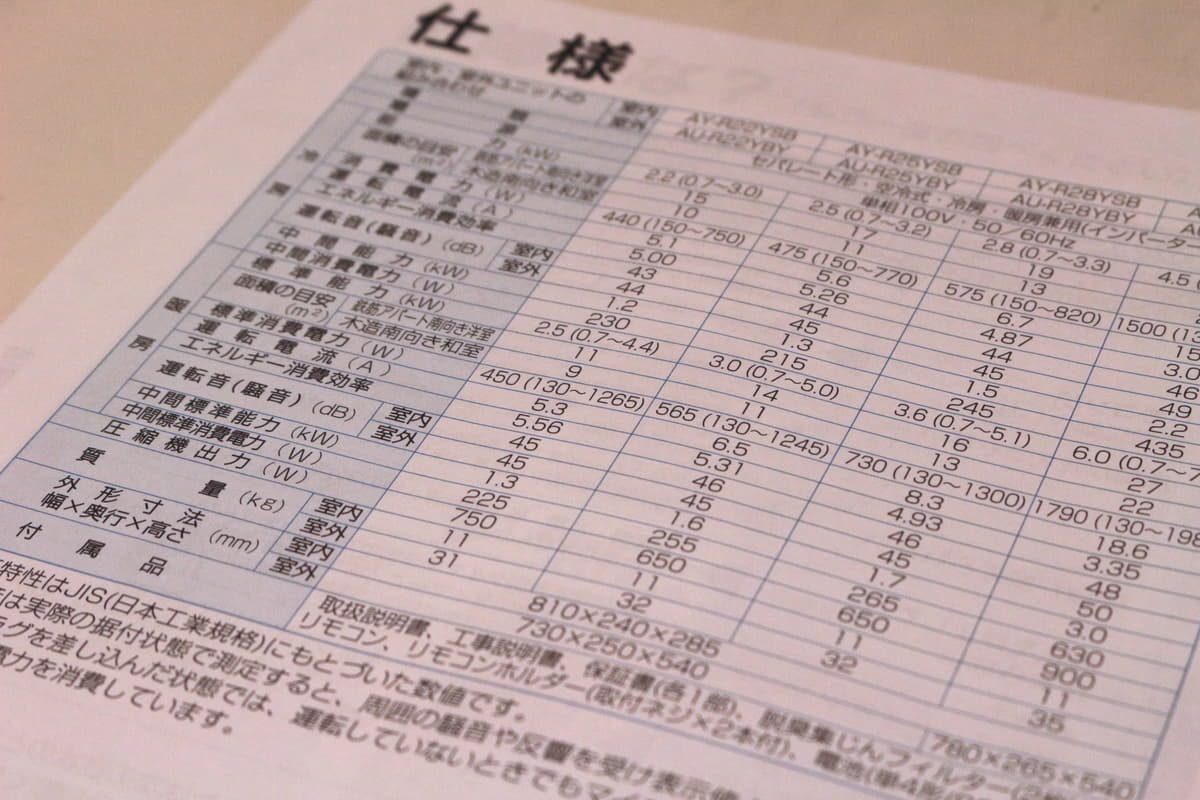 仕様
室内・室外ユニットの 組み合わせ 室内 AY-R22YSB AY-R25YSB AY-R28YSB
室外 AU-R22YBY AU-R25YBY AU-R28YBY
種類 セパレート形・空冷式・冷房・暖房兼用(インバーター
電源 単相100V・50/60Hz
冷房
能力(kW) 2.2(0.7〜3.0) 2.5(0.7〜3.2) 2.8(0.7〜3.3) 4.5
面積の目安(m²) 鉄筋アパート南向き洋室 15 17 19
木造南向き和室 10 11 13
消費電力(W) 440(150〜750) 475(150〜770) 575(150〜820) 1500(1
運転電流(A) 5.1 5.6 6.7 15
エネルギー消費効率 5.00 5.26 4.87 3.0
運転音(騒音)(dB) 室内 43 44 44 46
室外 44 45 45 49
中間能力(kW) 1.2 1.3 1.5 2.2
中間消費電力(W) 230 215 245 435
暖房
標準能力(kW) 2.5(0.7〜4.4) 3.0(0.7〜5.0) 3.6(0.7〜5.1) 6.0(0.7〜7
面積の目安(m²) 鉄筋アパート南向き洋室 11 14 16 27
木造南向き和室 9 11 13 22
標準消費電力(W) 450(130〜1265) 565(130〜1245) 730(130〜1300) 1790(130〜198
運転電流(A) 5.3 6.5 8.3 18.6
エネルギー消費効率 5.56 5.31 4.93 3.35
運転音(騒音)(dB) 室内 45 46 46 48
室外 45 45 45 50
中間標準能力(kW) 1.3 1.6 1.7 3.0
中間標準消費電力(W) 225 255 265 630
圧縮機出力(W) 750 650 650 900
質量(kg) 室内 11 11 11 11
室外 31 32 32 35
外形寸法 幅×奥行×高さ(mm) 室内 810×240×285
室外 730×250×540 780×265×540
付属品 取扱説明書、工事説明書、保証書(各1部)、脱臭集じんフィルター(2
リモコン、リモコンホルダー(取付ネジ×2本付)、電池(単4形
特性はJIS(日本工業規格)にもとづいた数値です。
は実際の据付状態で測定すると、周囲の騒音や反響を受け表示値
グを差し込んだ状態では、運転していないときでもマイ
電力を消費しています。